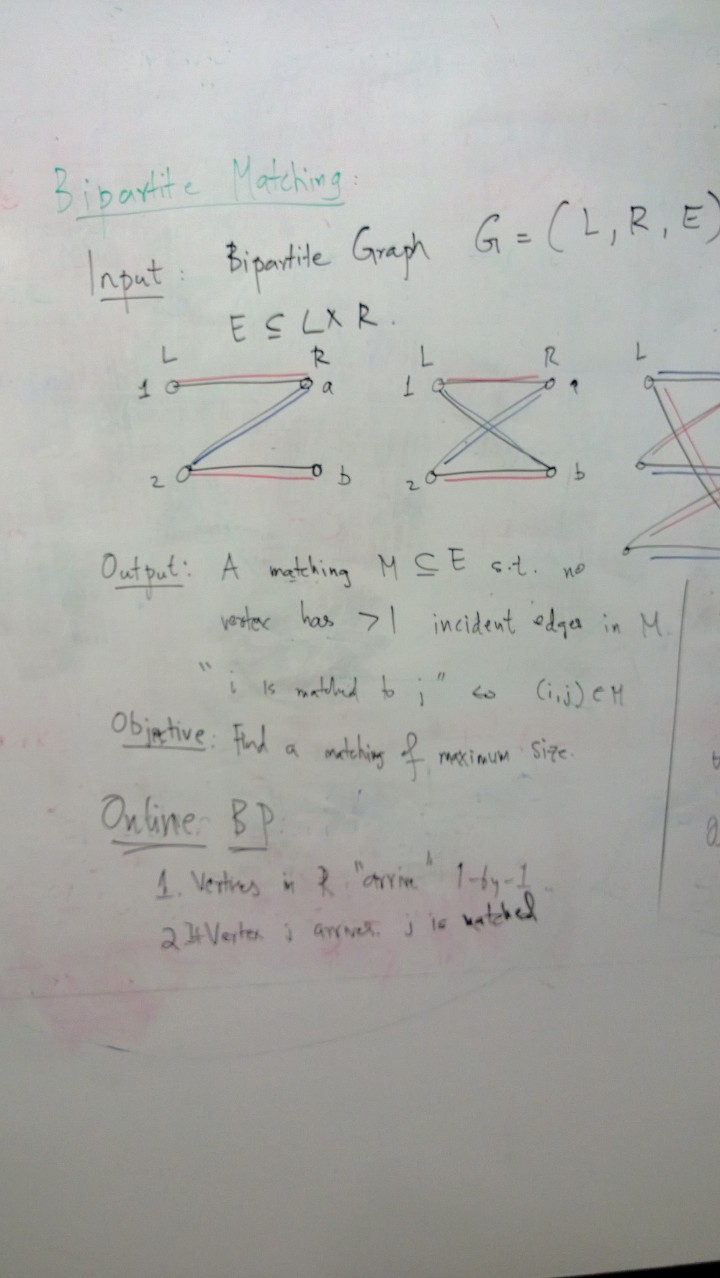 Bipartite Matching:
Input: Bipartite Graph G = (L, R, E)
E ⊆ L X R.
L R L R L
1 a 1 a
2 b 2 b
Output: A matching M ⊆ E s.t. no
vertex has >1 incident edges in M.
"i is matched to j" ⇔ (i,j) ∈ M
Objective: Find a matching of maximum size.
Online BP:
1. Vertices in R "arrive" 1-by-1
2 If Vertex j arrives. j is matched